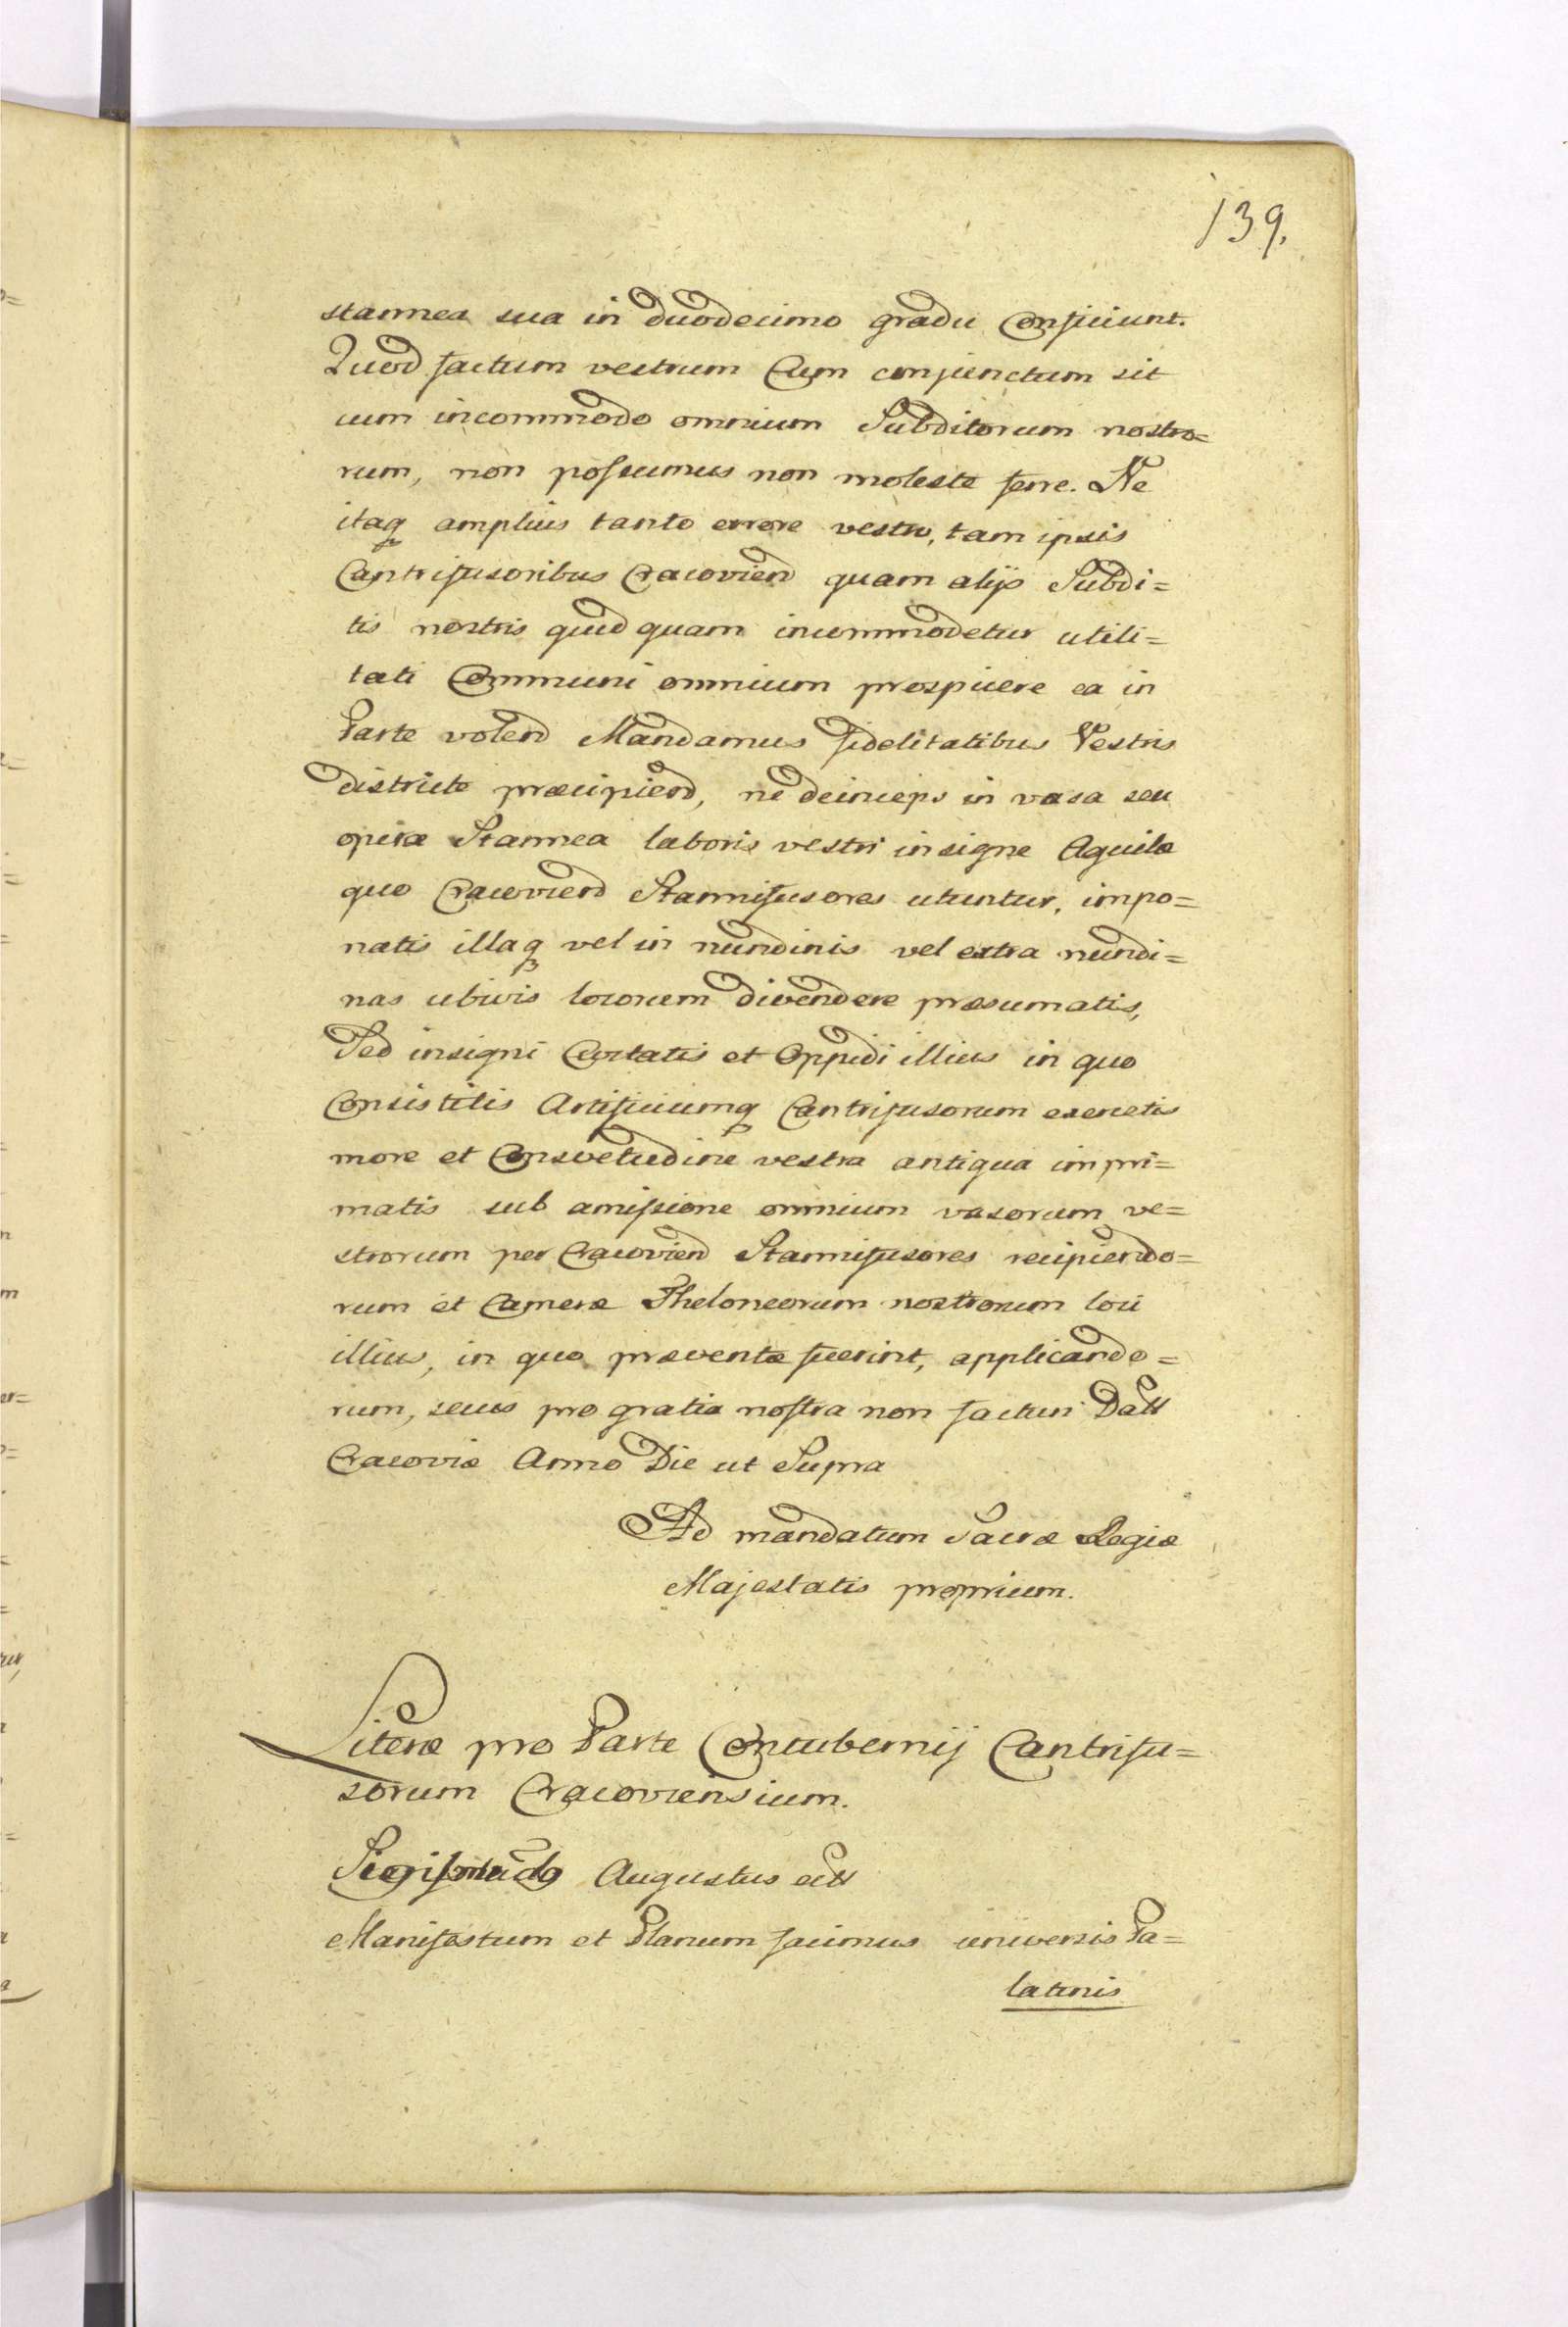 139.
stannea sua in duodecimo gradu Conficiunt.
Quod factum vestrum Cum conjunctum sit
cum incommodo omnium Subditorum nostro=
rum, non possumus non moleste ferre. Ne
itaq amplius tanto errore vestro, tam ipsis
Cantrifusoribus Cracovien quam alijs Subdi=
tis nostris quid quam incommodetur utili=
tati Communi omnium prospicere ea in
Parte volend Mandamus fidelitatibus Vestris
districte præcipiend, ne deinceps in vasa seu
opera Stannea laboris vestri insigne Aquilæ
quo Cracoviend Stannifusores utuntur, impo=
natis illaq vel in nundinis vel extra nundi=
nas ubivis locorum divendere præsumatis,
Sed insigni Civitatis et Oppidi illius in quo
Consistitis Artificiumq Cantrifusorum exercetis
more et Consvetudine vestra antiqua impri=
matis sub amissione omnium vasorum ve=
strorum per Cracoviend Stannifusores recipiendo=
rum et Cameræ Theloneorum nostrorum loci
illius, in quo præventa fuerint, applicando=
rum, secus pro gratia nostra non facturi Datt
Cracoviæ Anno Die ut Supra
Ad mandatum Sacræ Regiæ
Majestatis proprium.
Literæ pro Parte Contubernij Cantrifu=
sorum Cracoviensium.
Sigismundg Augustus ett
Manifestum et Planum facimus universis Pa=
latinis